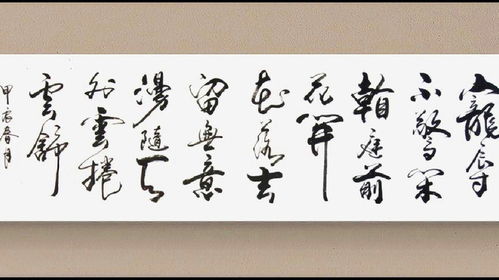 寵辱
不驚閑
看庭前
花開
花落去
留無意
漫隨天
外雲捲
雲舒
甲春月